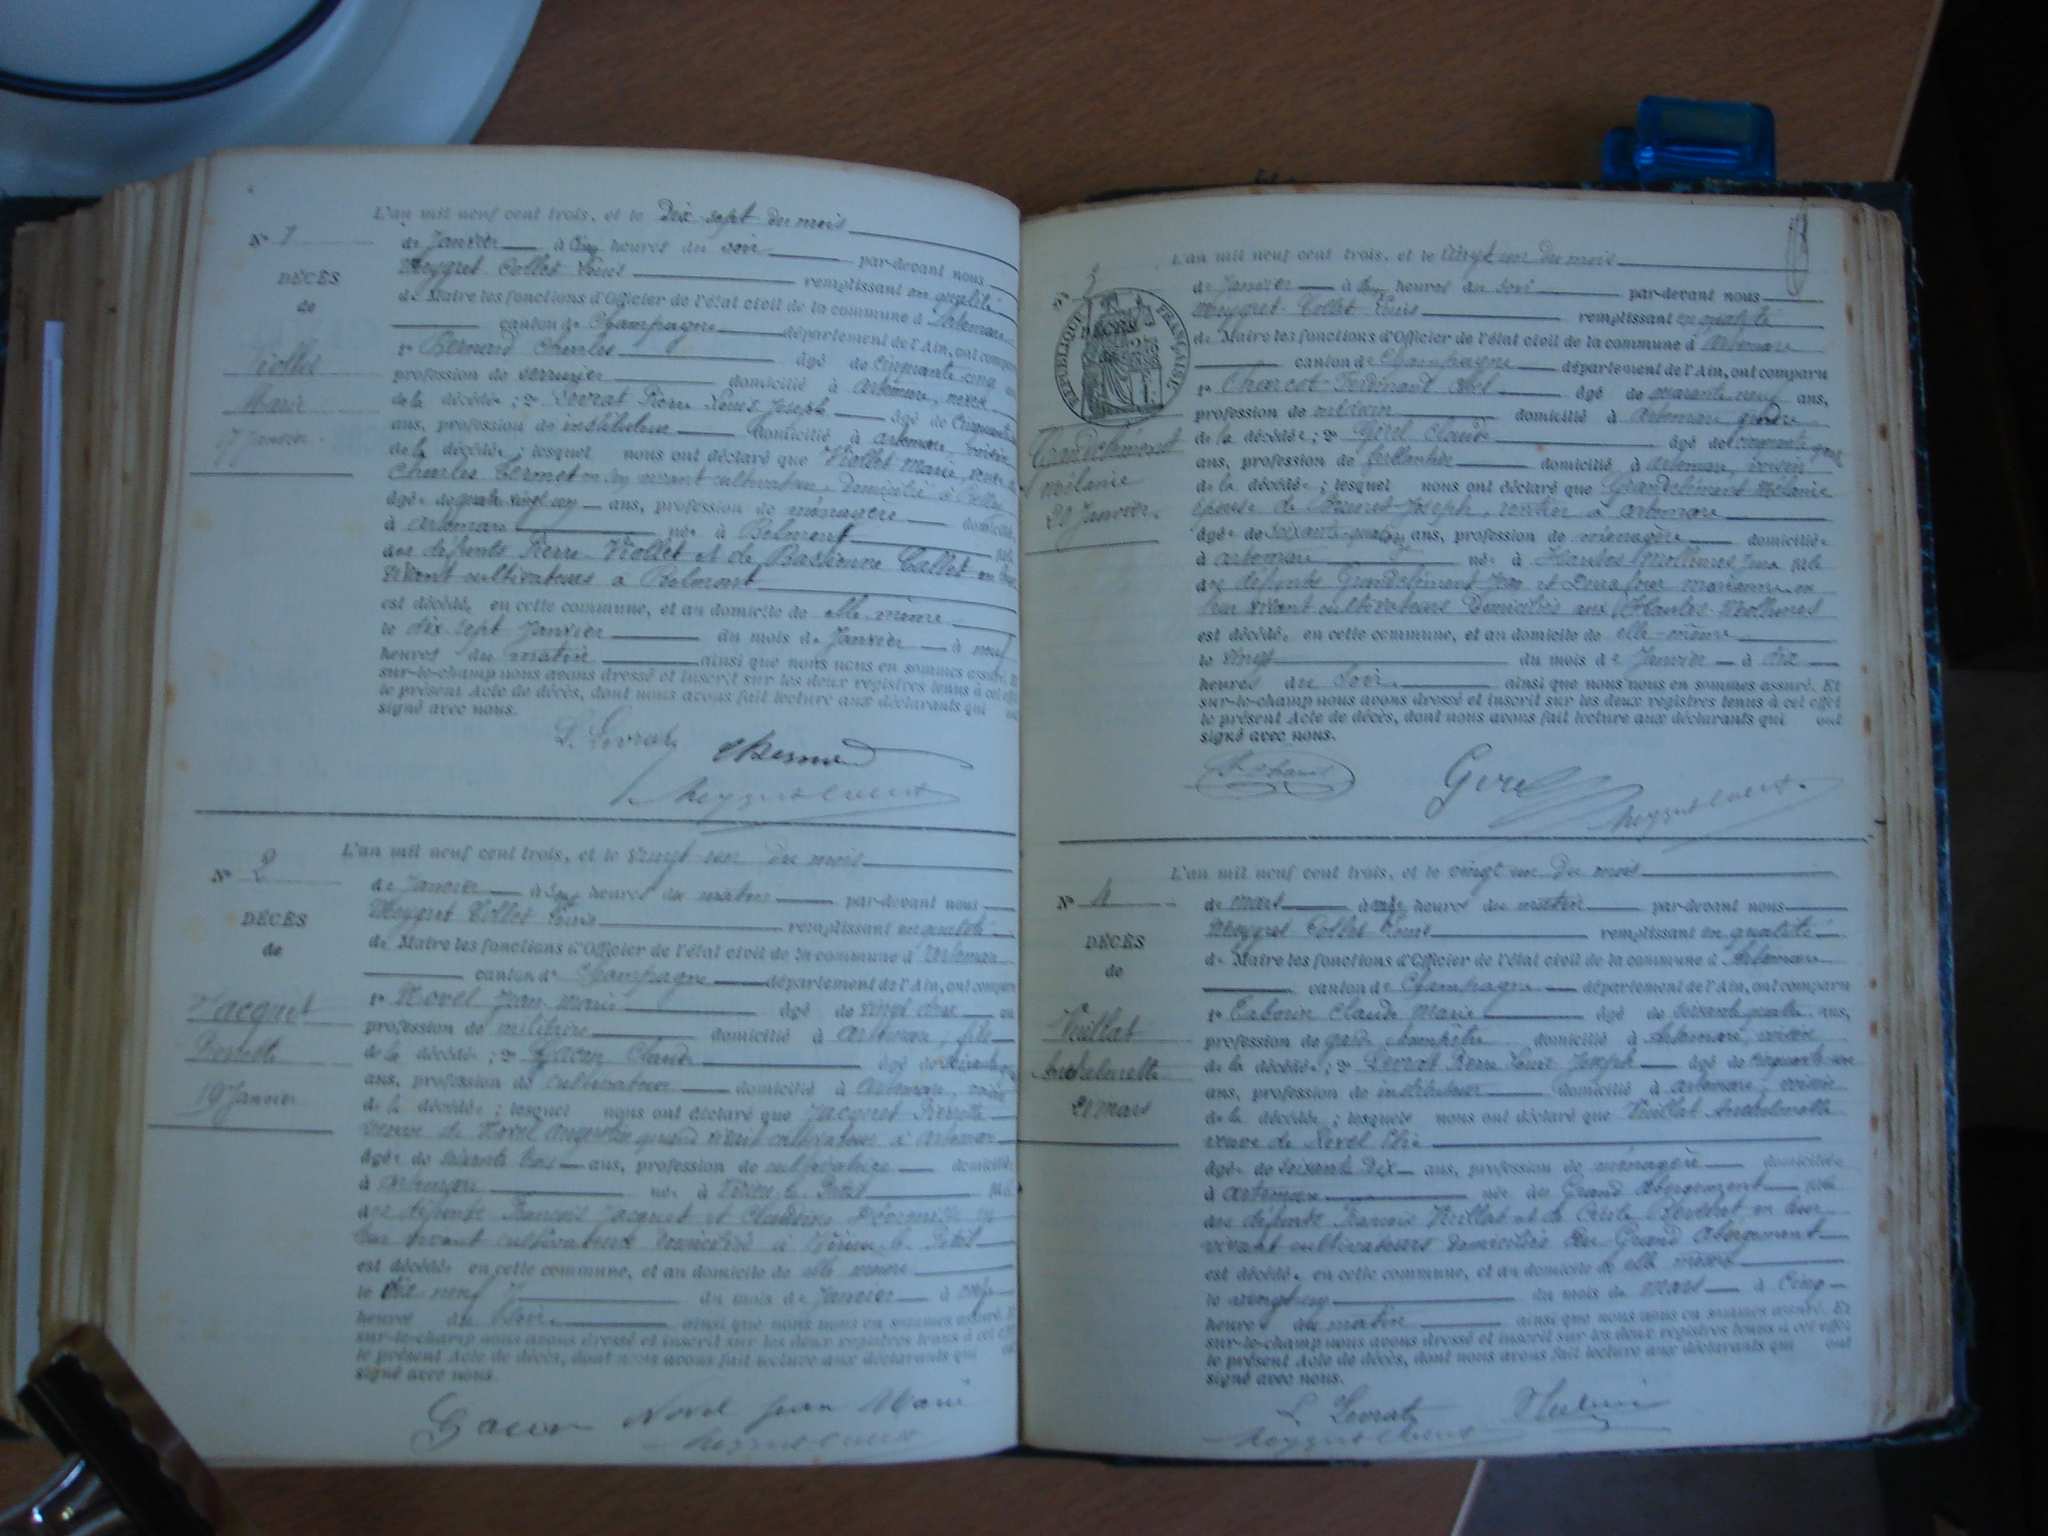 L'an mil neuf cent trois, et le Dix sept du mois
N° 1
de Janvier à Cinq heures du soir par-devant nous
DÉCÈS
Meygret Collet Louis remplissant en qualité
de
de Maire les fonctions d'Officier de l'état civil de la commune d'Artemare
canton de Champagne département de l'Ain, ont comparu
Viollet
1° Bernard Charles âgé de cinquante cinq
profession de serrurier domicilié à Artemare, neveu
Marie
de la décédée; 2° Levrat Pierre Louis Joseph âgé de Cinquante
17 Janvier
ans, profession de instituteur domicilié à artemare, voisin
de la décédée; lesquels nous ont déclaré que Viollet Marie, veuve de
Charles en son vivant cultivateur domicilié à
âgée de quatre vingt ans, profession de ménagère domiciliée
à artemare née à Belmont fille
des défunts Pierre Viollet et de Callet en leur
vivant cultivateurs à Belmont
est décédée en cette commune, et au domicile de elle même
le dix sept Janvier du mois de Janvier à neuf
heures du matin ainsi que nous nous en sommes assuré. Et
sur-le-champ nous avons dressé et inscrit sur les deux registres tenus à cet effet
le présent Acte de décès, dont nous avons fait lecture aux déclarants qui ont
signé avec nous.
L. Levrat Bernard
Meygret Collet
L'an mil neuf cent trois, et le vingt un du mois
N° 2
de Janvier à heures du matin par-devant nous
DÉCÈS
Meygret Collet Louis remplissant en qualité
de
de Maire les fonctions d'Officier de l'état civil de la commune d'Artemare
canton de Champagne département de l'Ain, ont comparu
Jacquet
1° Novel Jean Marie âgé de vingt deux
profession de militaire domicilié à artemare, fils
de la décédée; 2° Gacon Claude âgé de
19 Janvier
ans, profession de cultivateur domicilié à artemare, voisin
de la décédée; lesquels nous ont déclaré que Jacquet Pierrette
veuve de Novel quand vivait cultivateur à Artemare
âgée de soixante trois ans, profession de cultivatrice domiciliée
à artemare née à Virieu le Petit fille
des défunts François Jacquet et Claudine en
leur vivant cultivateurs domiciliés à Virieu le Petit
est décédée en cette commune, et au domicile de elle même
le dix neuf du mois de Janvier à onze
heures du soir ainsi que nous nous en sommes assuré. Et
sur-le-champ nous avons dressé et inscrit sur les deux registres tenus à cet effet
le présent Acte de décès, dont nous avons fait lecture aux déclarants qui ont
signé avec nous.
Gacon Novel Jean Marie
Meygret Collet
L'an mil neuf cent trois, et le vingt un du mois
N° 3
de Janvier à heures du soir par-devant nous
RÉPUBLIQUE FRANÇAISE
DÉCÈS
Meygret Collet Louis remplissant en qualité
de Maire les fonctions d'Officier de l'état civil de la commune d'Artemare
canton de Champagne département de l'Ain, ont comparu
1° Charcot Ferdinand Abel âgé de quarante neuf ans,
profession de médecin domicilié à Artemare gendre
Grandclément
de la décédée; 2° Girel Claude âgé de cinquante
ans, profession de ferblantier domicilié à artemare, voisin
Mélanie
de la décédée; lesquels nous ont déclaré que Grandclément Mélanie
20 Janvier
épouse de Joseph, rentier à artemare
âgée de soixante quatre ans, profession de ménagère domiciliée
à artemare née à Hautes Molunes Jura fille
des défunts Grandclément Jean et marianne en
leur vivant cultivateurs domiciliés aux Hautes-Molunes
est décédée en cette commune, et au domicile de elle-même
le vingt du mois de Janvier à dix
heures du soir ainsi que nous nous en sommes assuré. Et
sur-le-champ nous avons dressé et inscrit sur les deux registres tenus à cet effet
le présent Acte de décès, dont nous avons fait lecture aux déclarants qui ont
signé avec nous.
Girel
Meygret Collet
L'an mil neuf cent trois, et le vingt un du mois
N° 4
de mars à heures du matin par-devant nous
DÉCÈS
Meygret Collet Louis remplissant en qualité
de
de Maire les fonctions d'Officier de l'état civil de la commune d'Artemare
canton de Champagne département de l'Ain, ont comparu
Vuillat
1° Claude Marie âgé de soixante quatre ans,
profession de garde champêtre domicilié à Artemare, voisin
Anthelmette
de la décédée; 2° Levrat Pierre Louis Joseph âgé de cinquante un
21 mars
ans, profession de instituteur domicilié à artemare, voisin
de la décédée; lesquels nous ont déclaré que Vuillat Anthelmette
veuve de Novel
âgée de soixante dix ans, profession de ménagère domiciliée
à artemare née au Grand Abergement fille
des défunts François Vuillat et de en leur
vivant cultivateurs domiciliés au Grand Abergement
est décédée en cette commune, et au domicile de elle même
le vingt un du mois de mars à cinq
heures du matin ainsi que nous nous en sommes assuré. Et
sur-le-champ nous avons dressé et inscrit sur les deux registres tenus à cet effet
le présent Acte de décès, dont nous avons fait lecture aux déclarants qui ont
signé avec nous.
L. Levrat
Meygret Collet